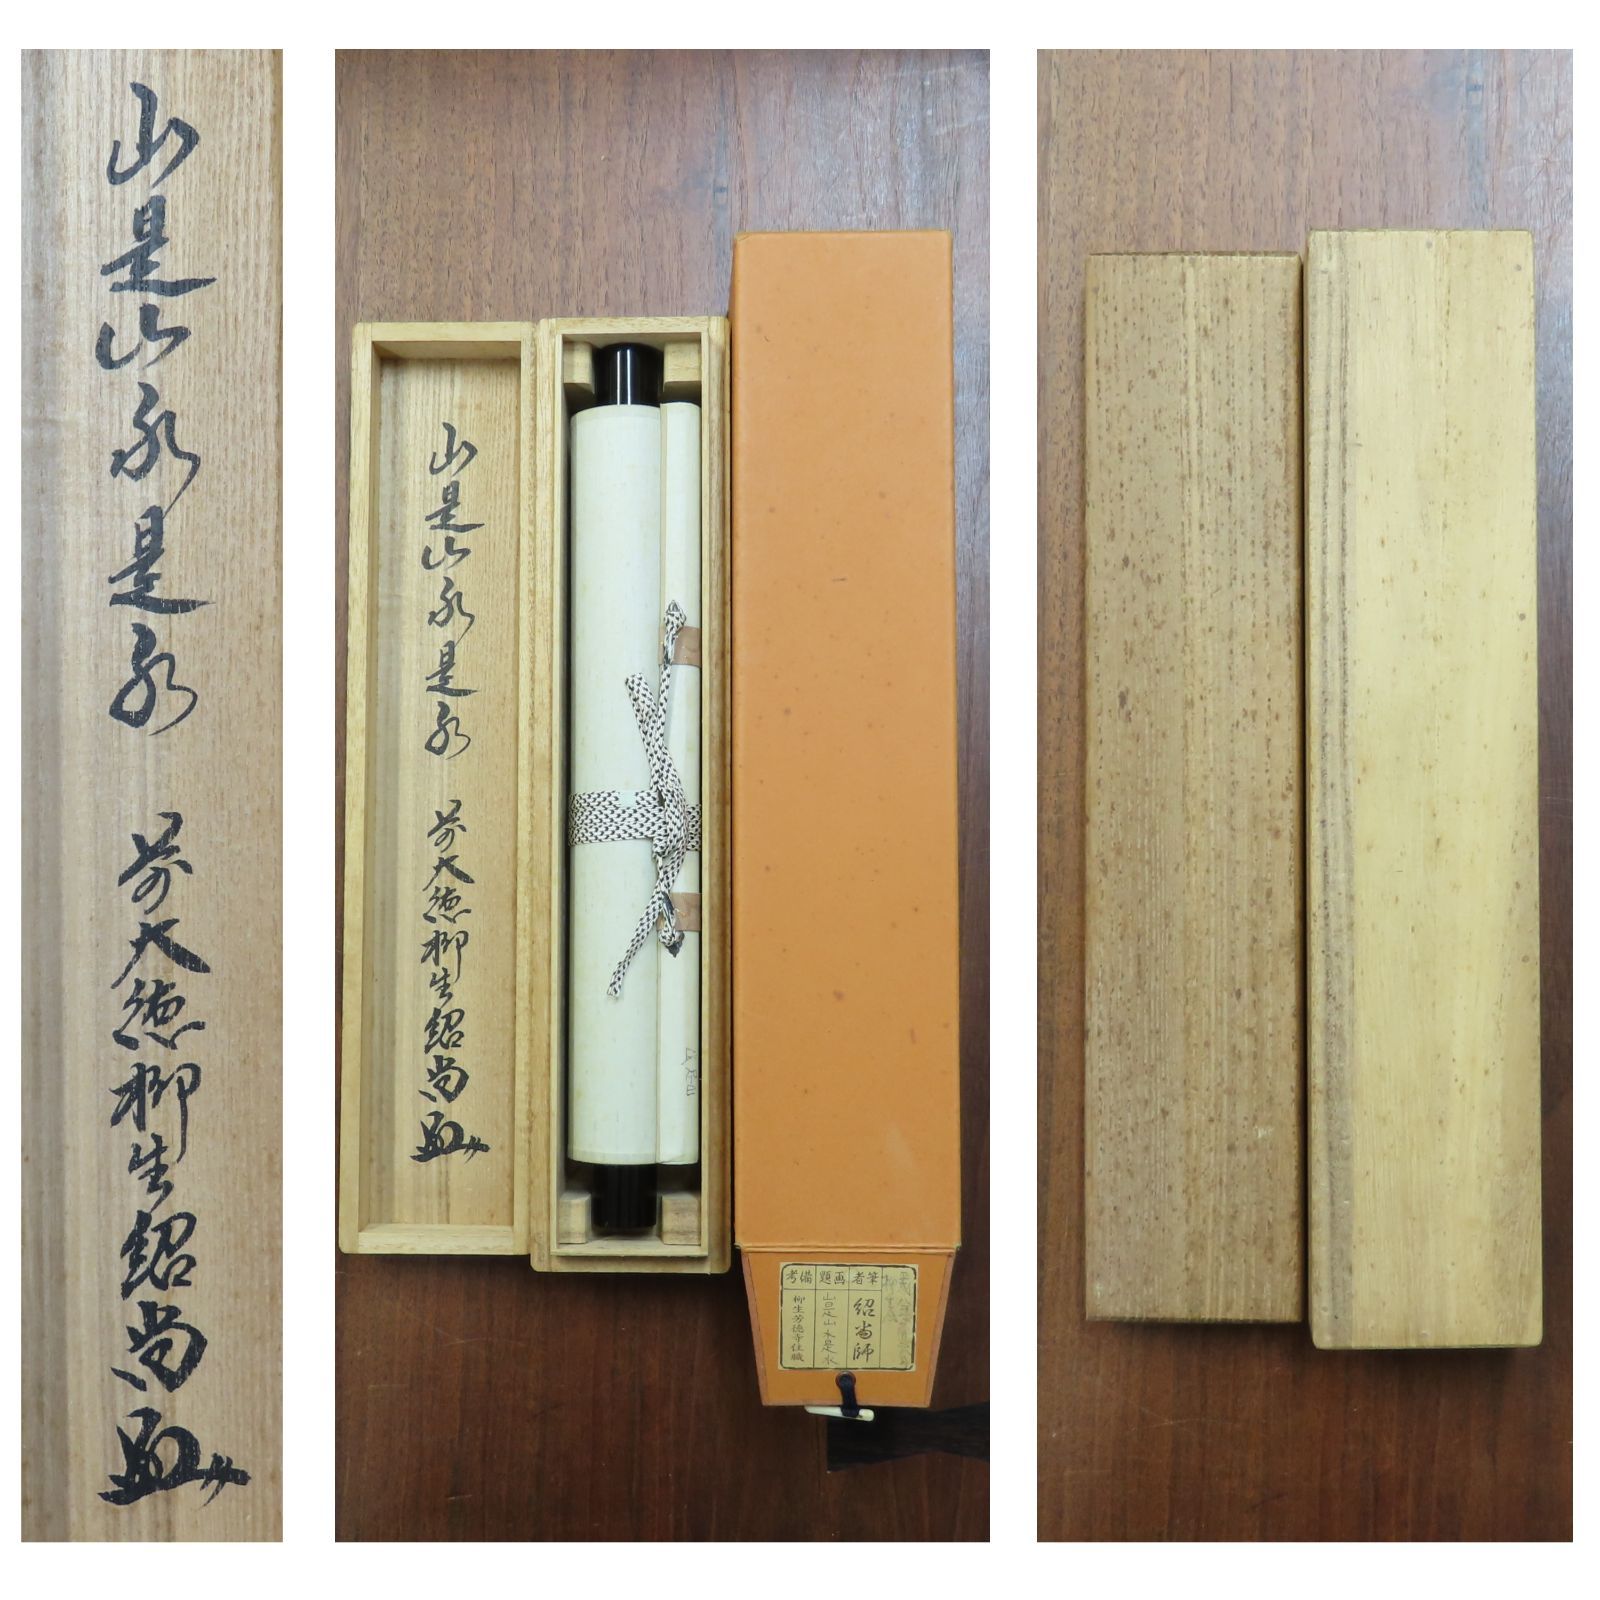 山是山水是水 前大徳柳生紹尚
山是山水是水 前大徳柳生紹尚
筆者
紹尚師
画題
山是山水是水
備考
柳生芳徳寺住職